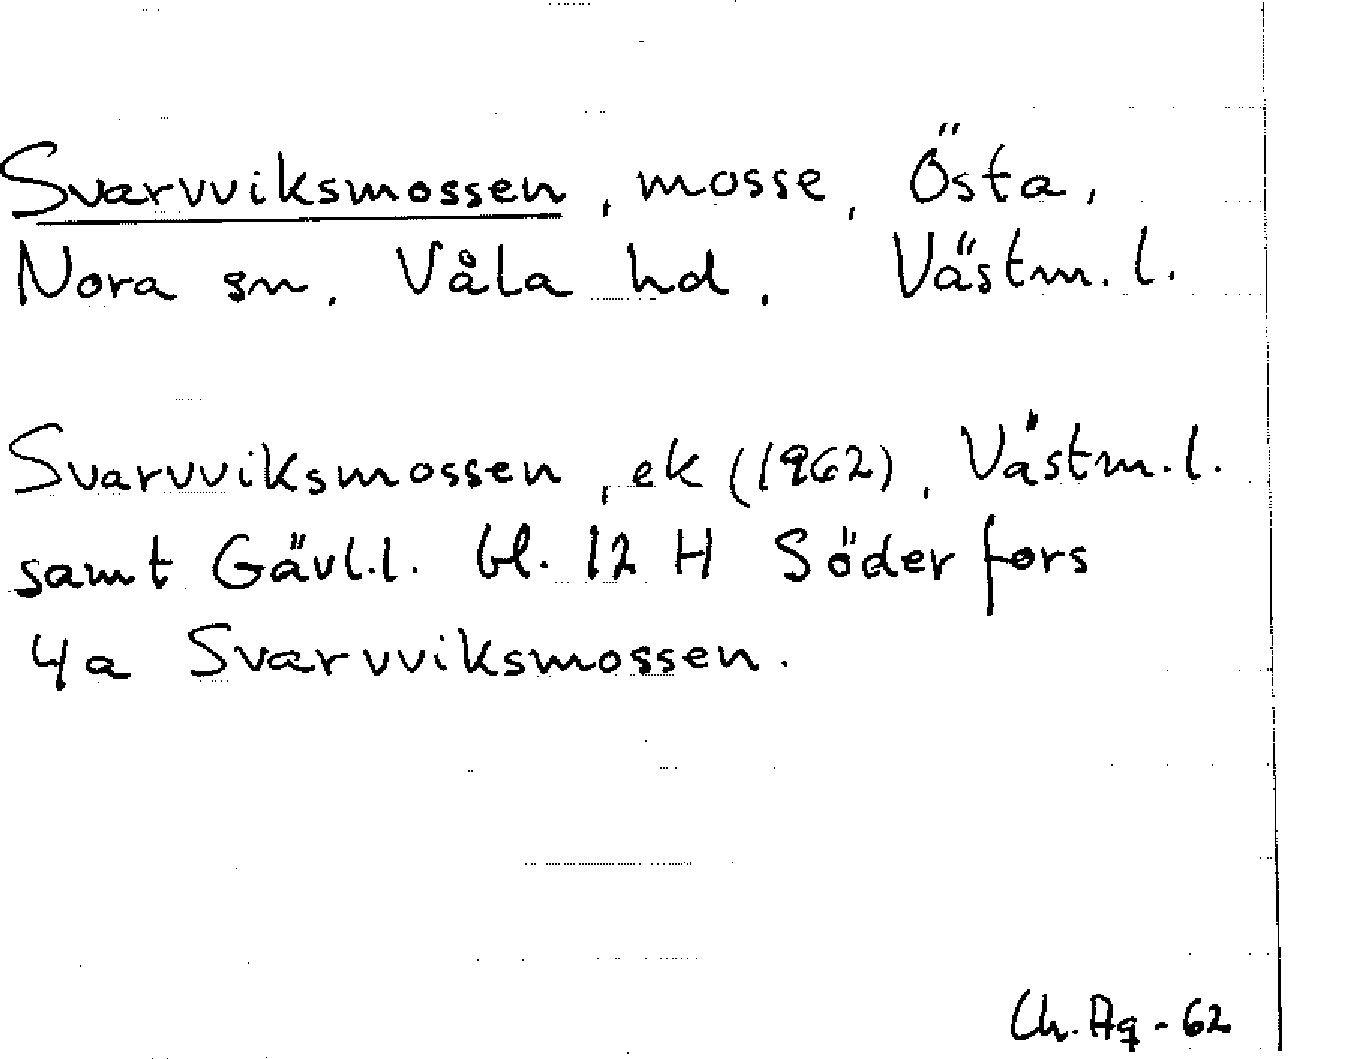 Svarvviksmossen, mosse, Östa,
Nora sn. Våla hd. Västm. l.
Svarvviksmossen, ek (1962), Västm. l.
samt Gävl.l. bl. 12 H Söderfors
4a Svarvviksmossen.
Ch. Aq - 62